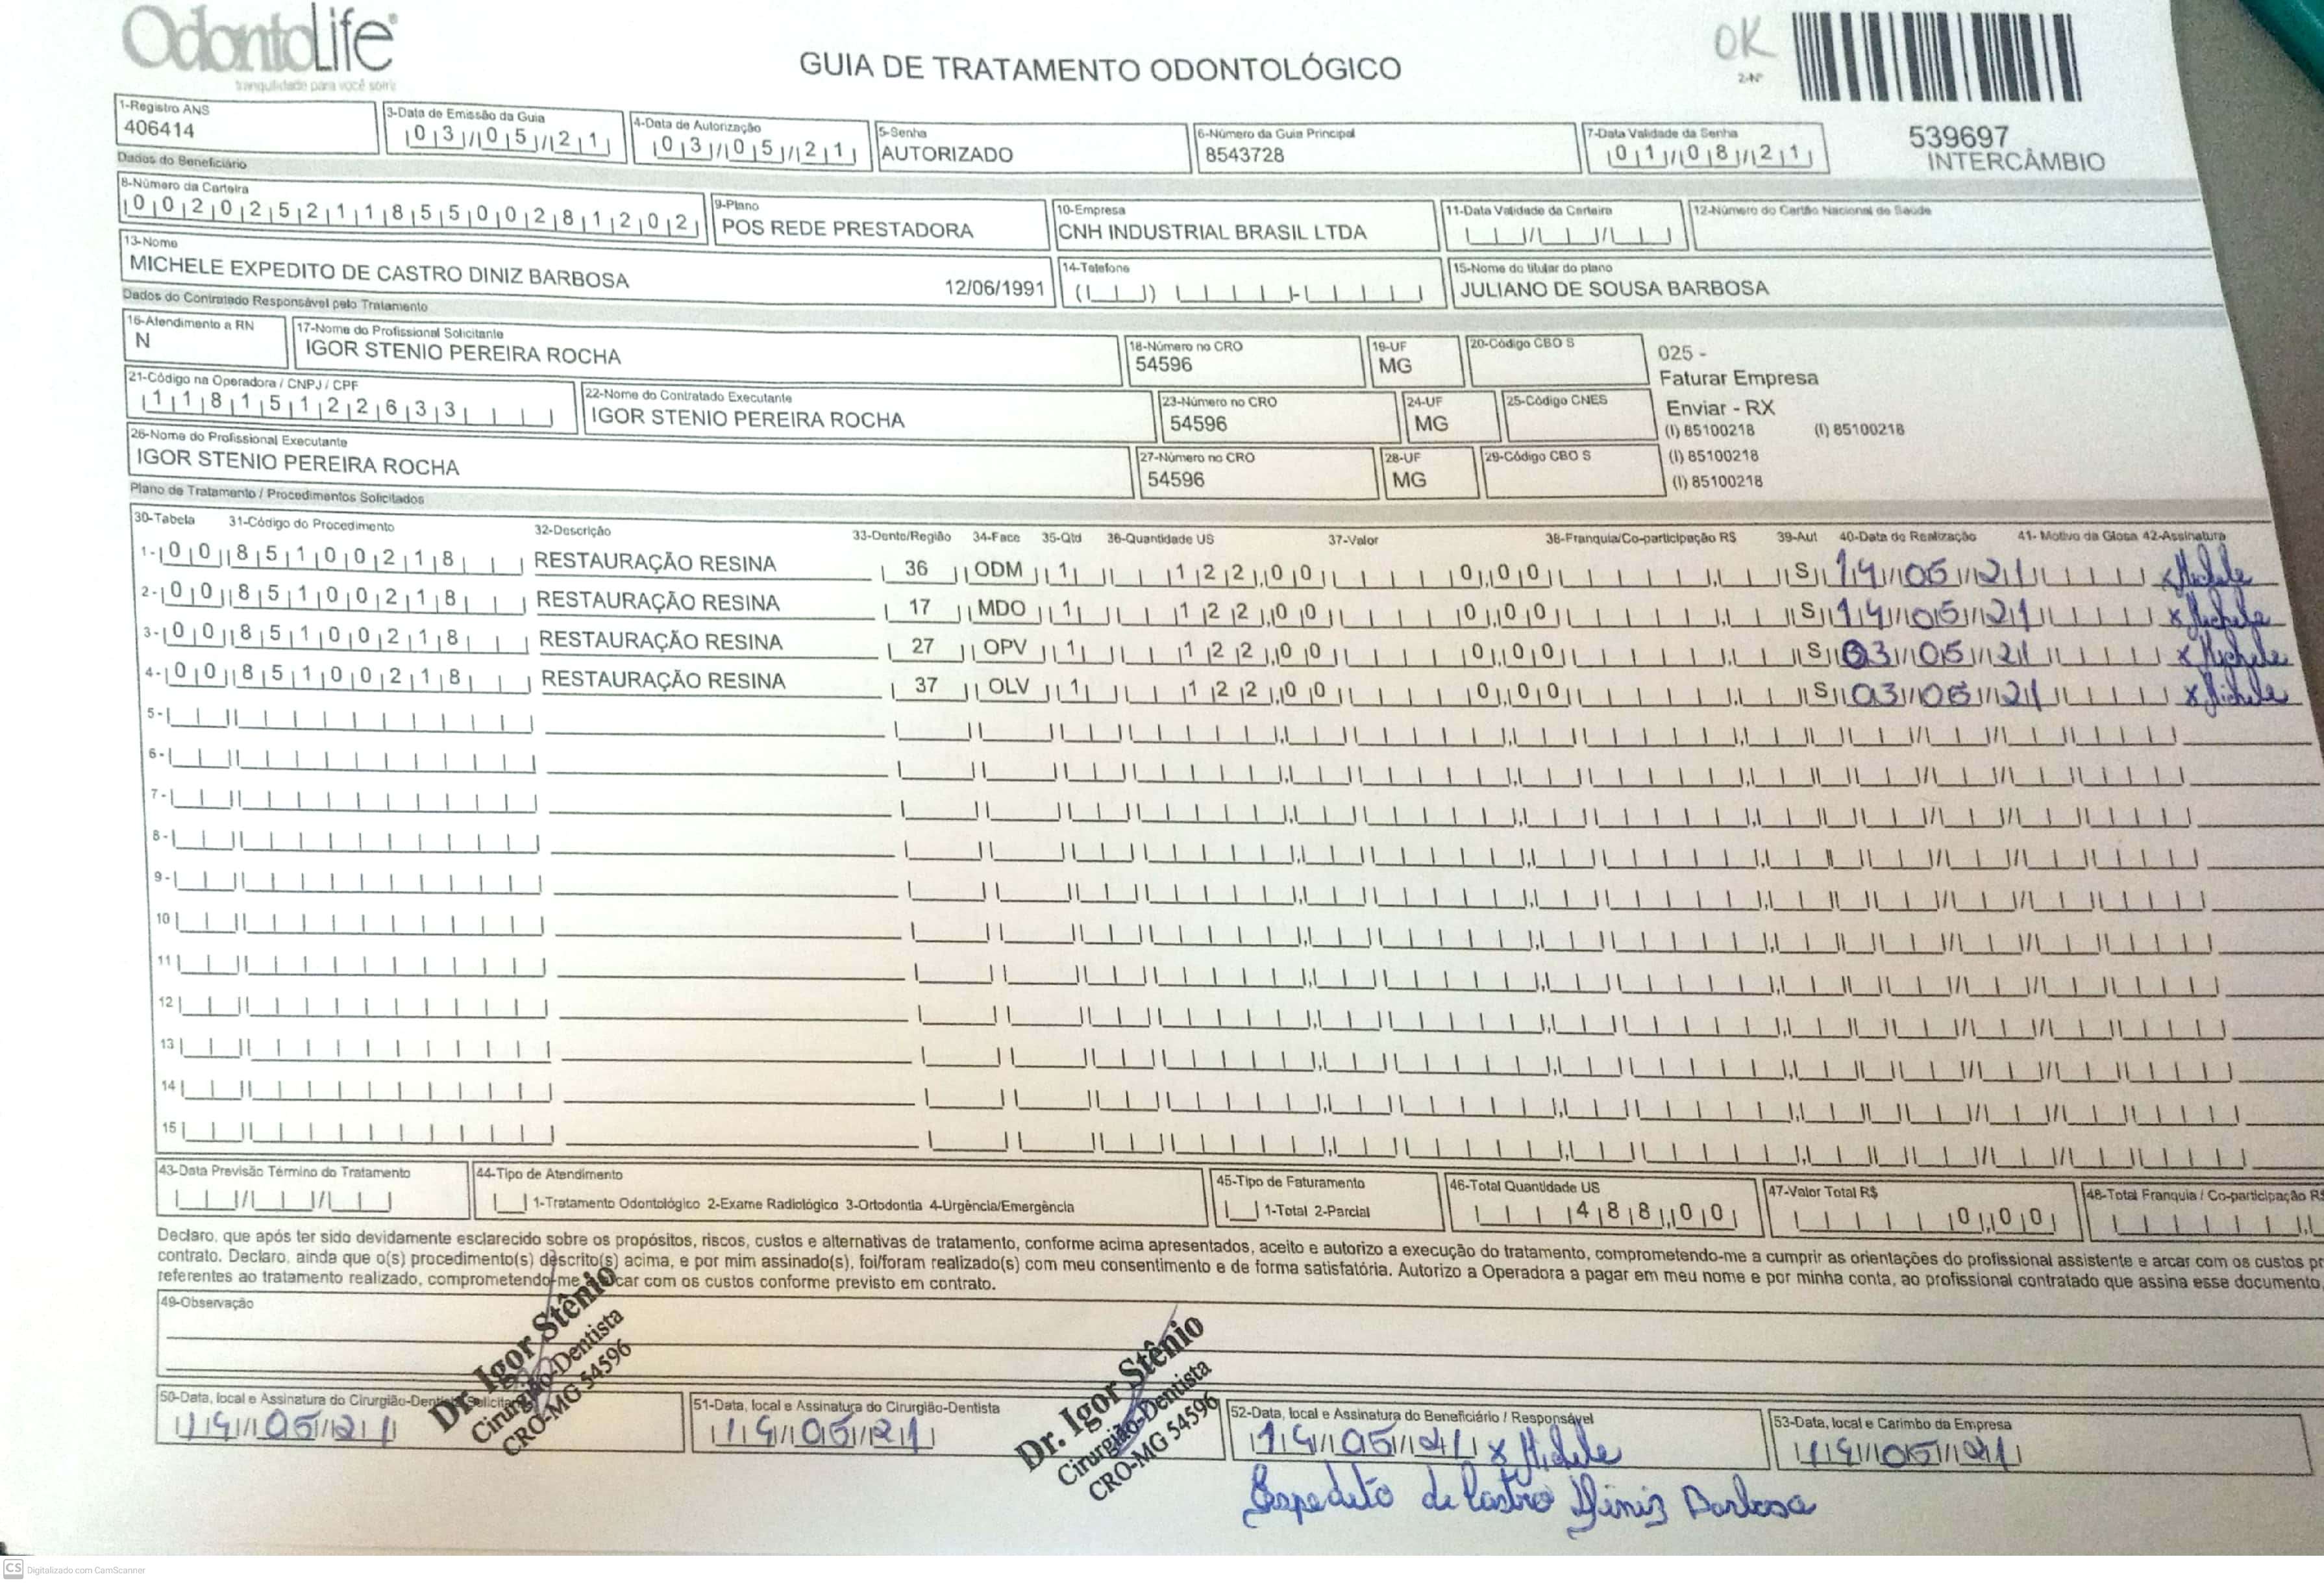 OdontoLife®
tranquilidade para você sorrir
GUIA DE TRATAMENTO ODONTOLÓGICO
OK
2-Nº
539697
INTERCÂMBIO
1-Registro ANS
406414
3-Data de Emissão da Guia
03/05/21
4-Data de Autorização
03/05/21
5-Senha
AUTORIZADO
6-Número da Guia Principal
8543728
7-Data Validade da Senha
01/08/21
Dados do Beneficiário
8-Número da Carteira
00202521185500281202
9-Plano
POS REDE PRESTADORA
10-Empresa
CNH INDUSTRIAL BRASIL LTDA
11-Data Validade da Carteira
12-Número do Cartão Nacional de Saúde
13-Nome
MICHELE EXPEDITO DE CASTRO DINIZ BARBOSA 12/06/1991
14-Telefone
15-Nome do titular do plano
JULIANO DE SOUSA BARBOSA
Dados do Contratado Responsável pelo Tratamento
16-Atendimento a RN
N
17-Nome do Profissional Solicitante
IGOR STENIO PEREIRA ROCHA
18-Número no CRO
54596
19-UF
MG
20-Código CBO S
025 -
Faturar Empresa
Enviar - RX
(I) 85100218 (I) 85100218
(I) 85100218
(I) 85100218
21-Código na Operadora / CNPJ / CPF
11815122633
22-Nome do Contratado Executante
IGOR STENIO PEREIRA ROCHA
23-Número no CRO
54596
24-UF
MG
25-Código CNES
26-Nome do Profissional Executante
IGOR STENIO PEREIRA ROCHA
27-Número no CRO
54596
28-UF
MG
29-Código CBO S
Plano de Tratamento / Procedimentos Solicitados
30-Tabela 31-Código do Procedimento 32-Descrição 33-Dente/Região 34-Face 35-Qtd 36-Quantidade US 37-Valor 38-Franquia/Co-participação R$ 39-Aut 40-Data de Realização 41-Motivo da Glosa 42-Assinatura
1- 00 85100218 RESTAURAÇÃO RESINA 36 ODM 1 122,00 0,00 S 14/05/21 x Michele
2- 00 85100218 RESTAURAÇÃO RESINA 17 MDO 1 122,00 0,00 S 14/05/21 x Michele
3- 00 85100218 RESTAURAÇÃO RESINA 27 OPV 1 122,00 0,00 S 03/05/21 x Michele
4- 00 85100218 RESTAURAÇÃO RESINA 37 OLV 1 122,00 0,00 S 03/05/21 x Michele
5-
6-
7-
8-
9-
10
11
12
13
14
15
43-Data Previsão Término do Tratamento
44-Tipo de Atendimento
1-Tratamento Odontológico 2-Exame Radiológico 3-Ortodontia 4-Urgência/Emergência
45-Tipo de Faturamento
1-Total 2-Parcial
46-Total Quantidade US
488,00
47-Valor Total R$
0,00
48-Total Franquia / Co-participação R$
Declaro, que após ter sido devidamente esclarecido sobre os propósitos, riscos, custos e alternativas de tratamento, conforme acima apresentados, aceito e autorizo a execução do tratamento, comprometendo-me a cumprir as orientações do profissional assistente e arcar com os custos pr
contrato. Declaro, ainda que o(s) procedimento(s) descrito(s) acima, e por mim assinado(s), foi/foram realizado(s) com meu consentimento e de forma satisfatória. Autorizo a Operadora a pagar em meu nome e por minha conta, ao profissional contratado que assina esse documento,
referentes ao tratamento realizado, comprometendo-me a arcar com os custos conforme previsto em contrato.
49-Observação
Dr. Igor Stênio
Cirurgião-Dentista
CRO-MG 54596
Dr. Igor Stênio
Cirurgião-Dentista
CRO-MG 54596
50-Data, local e Assinatura do Cirurgião-Dentista Solicitante
14/05/21
51-Data, local e Assinatura do Cirurgião-Dentista
14/05/21
52-Data, local e Assinatura do Beneficiário / Responsável
14/05/21 x Michele
Expedito de Castro Diniz Barbosa
53-Data, local e Carimbo da Empresa
14/05/21
CS Digitalizado com CamScanner